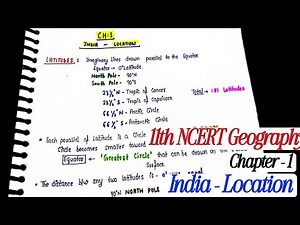 CH:1
INDIA - LOCATION
LATITUDES : Imaginary lines drawn parallel to the Equator
Equator → 0° Latitude.
North Pole - 90°N
South Pole - 90°S
23½°N - Tropic of Cancer
23½°S - Tropic of Capricorn
Total → 181 Latitudes
66½°N - Arctic Circle
66½°S - Antarctic Circle
→ Each parallel of Latitude is a Circle
Circle becomes smaller toward
Equator ← 'Greatest Circle' that can be drawn on the
Surface.
→ The distance b/w any two latitudes is
90°N NORTH POLE
11th NCERT Geograph
Chapter - 1
India - Location